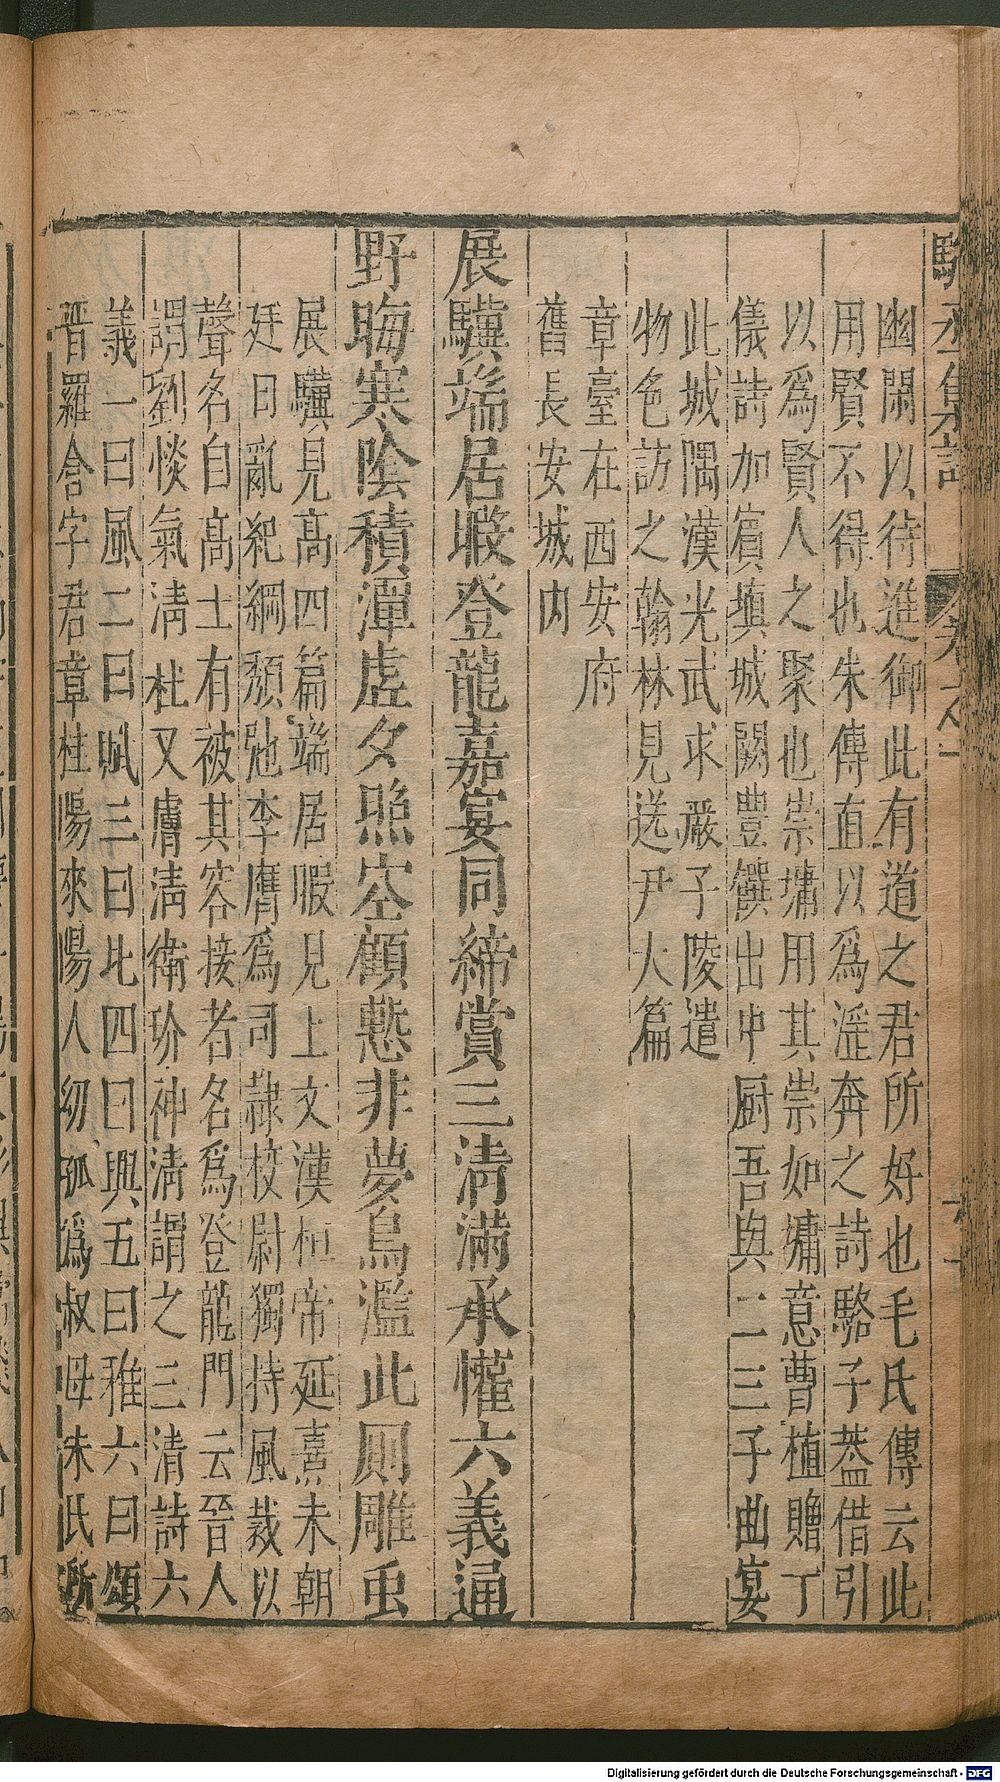 幽閑以待進御此有道之君所好也毛氏傳云此
用賢不得也朱傳直以爲淫奔之詩駱子葢借引
以爲賢人之聚也崇墉用其崇如墉意曹植贈丁
儀詩加賔填城闕豐饌出中厨吾與二三子曲宴
此城隅漢光武求嚴子陵遣
物色訪之翰林見送尹大篇
章臺在西安府
舊長安城内
展驥端居暇登龍嘉宴同締賞三清滿承懽六義通
野晦寒陰積潭虗夕照空顧慙非夢鳥濫此厠雕虫
展驥見高四篇端居暇見上文漢桓帝延熹末朝
廷日亂紀綱頽弛李膺爲司隷校尉獨持風裁以
聲名自高士有被其容接者名爲登龍門云晉人
謂劉惔氣清杜又膚清衛玠神清謂之三清詩六
義一曰風二曰賦三曰比四曰興五曰雅六曰頌
晋羅含字君章桂陽來陽人幼孤爲叔母朱氏所
Digitalisierung gefördert durch die Deutsche Forschungsgemeinschaft - DFG